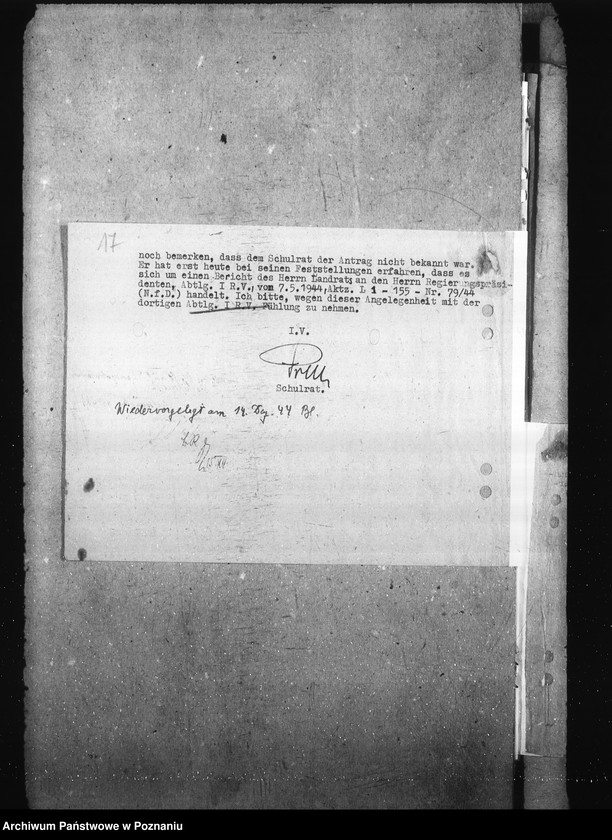 17
noch bemerken, dass dem Schulrat der Antrag nicht bekannt war.
Er hat erst heute bei seinen Feststellungen erfahren, dass es
sich um einen Bericht des Herrn Landrats an den Herrn Regierungspräsi-
denten, Abtlg. I R.V., vom 7.5.1944, Aktz. L 1 - 155 - Nr. 79/44
(N.f.D.) handelt. Ich bitte, wegen dieser Angelegenheit mit der
dortigen Abtlg. I R.V. Fühlung zu nehmen.
I.V.
Schulrat.
Wiedervorgelegt am 14. Dez. 44
Archiwum Państwowe w Poznaniu